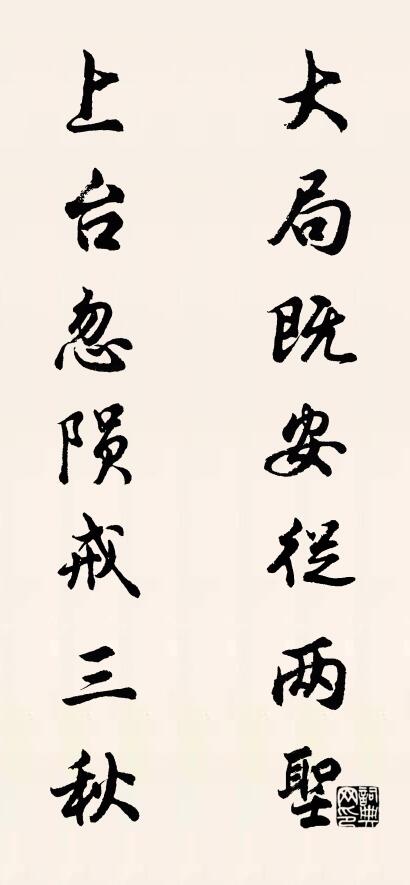 大局既安從两聖
上台忽陨戒三秋
詞典
网印